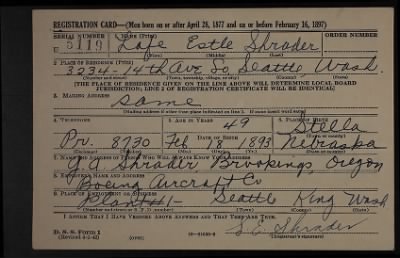 REGISTRATION CARD—(Men born on or after April 28, 1877 and on or before February 16, 1897)
SERIAL NUMBER 1. NAME (Print) ORDER NUMBER
Lafe Estle Shrader
(First) (Middle) (Last)
2. PLACE OF RESIDENCE (Print)
3234-14th Ave So Seattle, Wash.
(Number and street) (Town, township, village, or city) (County) (State)
[THE PLACE OF RESIDENCE GIVEN ON THE LINE ABOVE WILL DETERMINE LOCAL BOARD
JURISDICTION; LINE 2 OF REGISTRATION CERTIFICATE WILL BE IDENTICAL]
3. MAILING ADDRESS
Same
[Mailing address if other than place indicated on line 2. If same insert word same]
4. TELEPHONE 5. AGE IN YEARS 6. PLACE OF BIRTH
49
DATE OF BIRTH
Prv. 8930 Feb 18 1893 Nebraska
(Exchange) (Number) (Mo.) (Day) (Yr.) (State or country)
7. NAME AND ADDRESS OF PERSON WHO WILL ALWAYS KNOW YOUR ADDRESS
Shrader Brookings, Oregon
8. EMPLOYER'S NAME AND ADDRESS
Boeing Aircraft Co
9. PLACE OF EMPLOYMENT OR BUSINESS
Plant #1- Seattle King Wash
(Number and street or R. F. D. number) (Town) (County) (State)
I AFFIRM THAT I HAVE VERIFIED ABOVE ANSWERS AND THAT THEY ARE TRUE.
D. S. S. Form 1
(Revised 4-1-42) (over)
L E Shrader
(Registrant's signature)